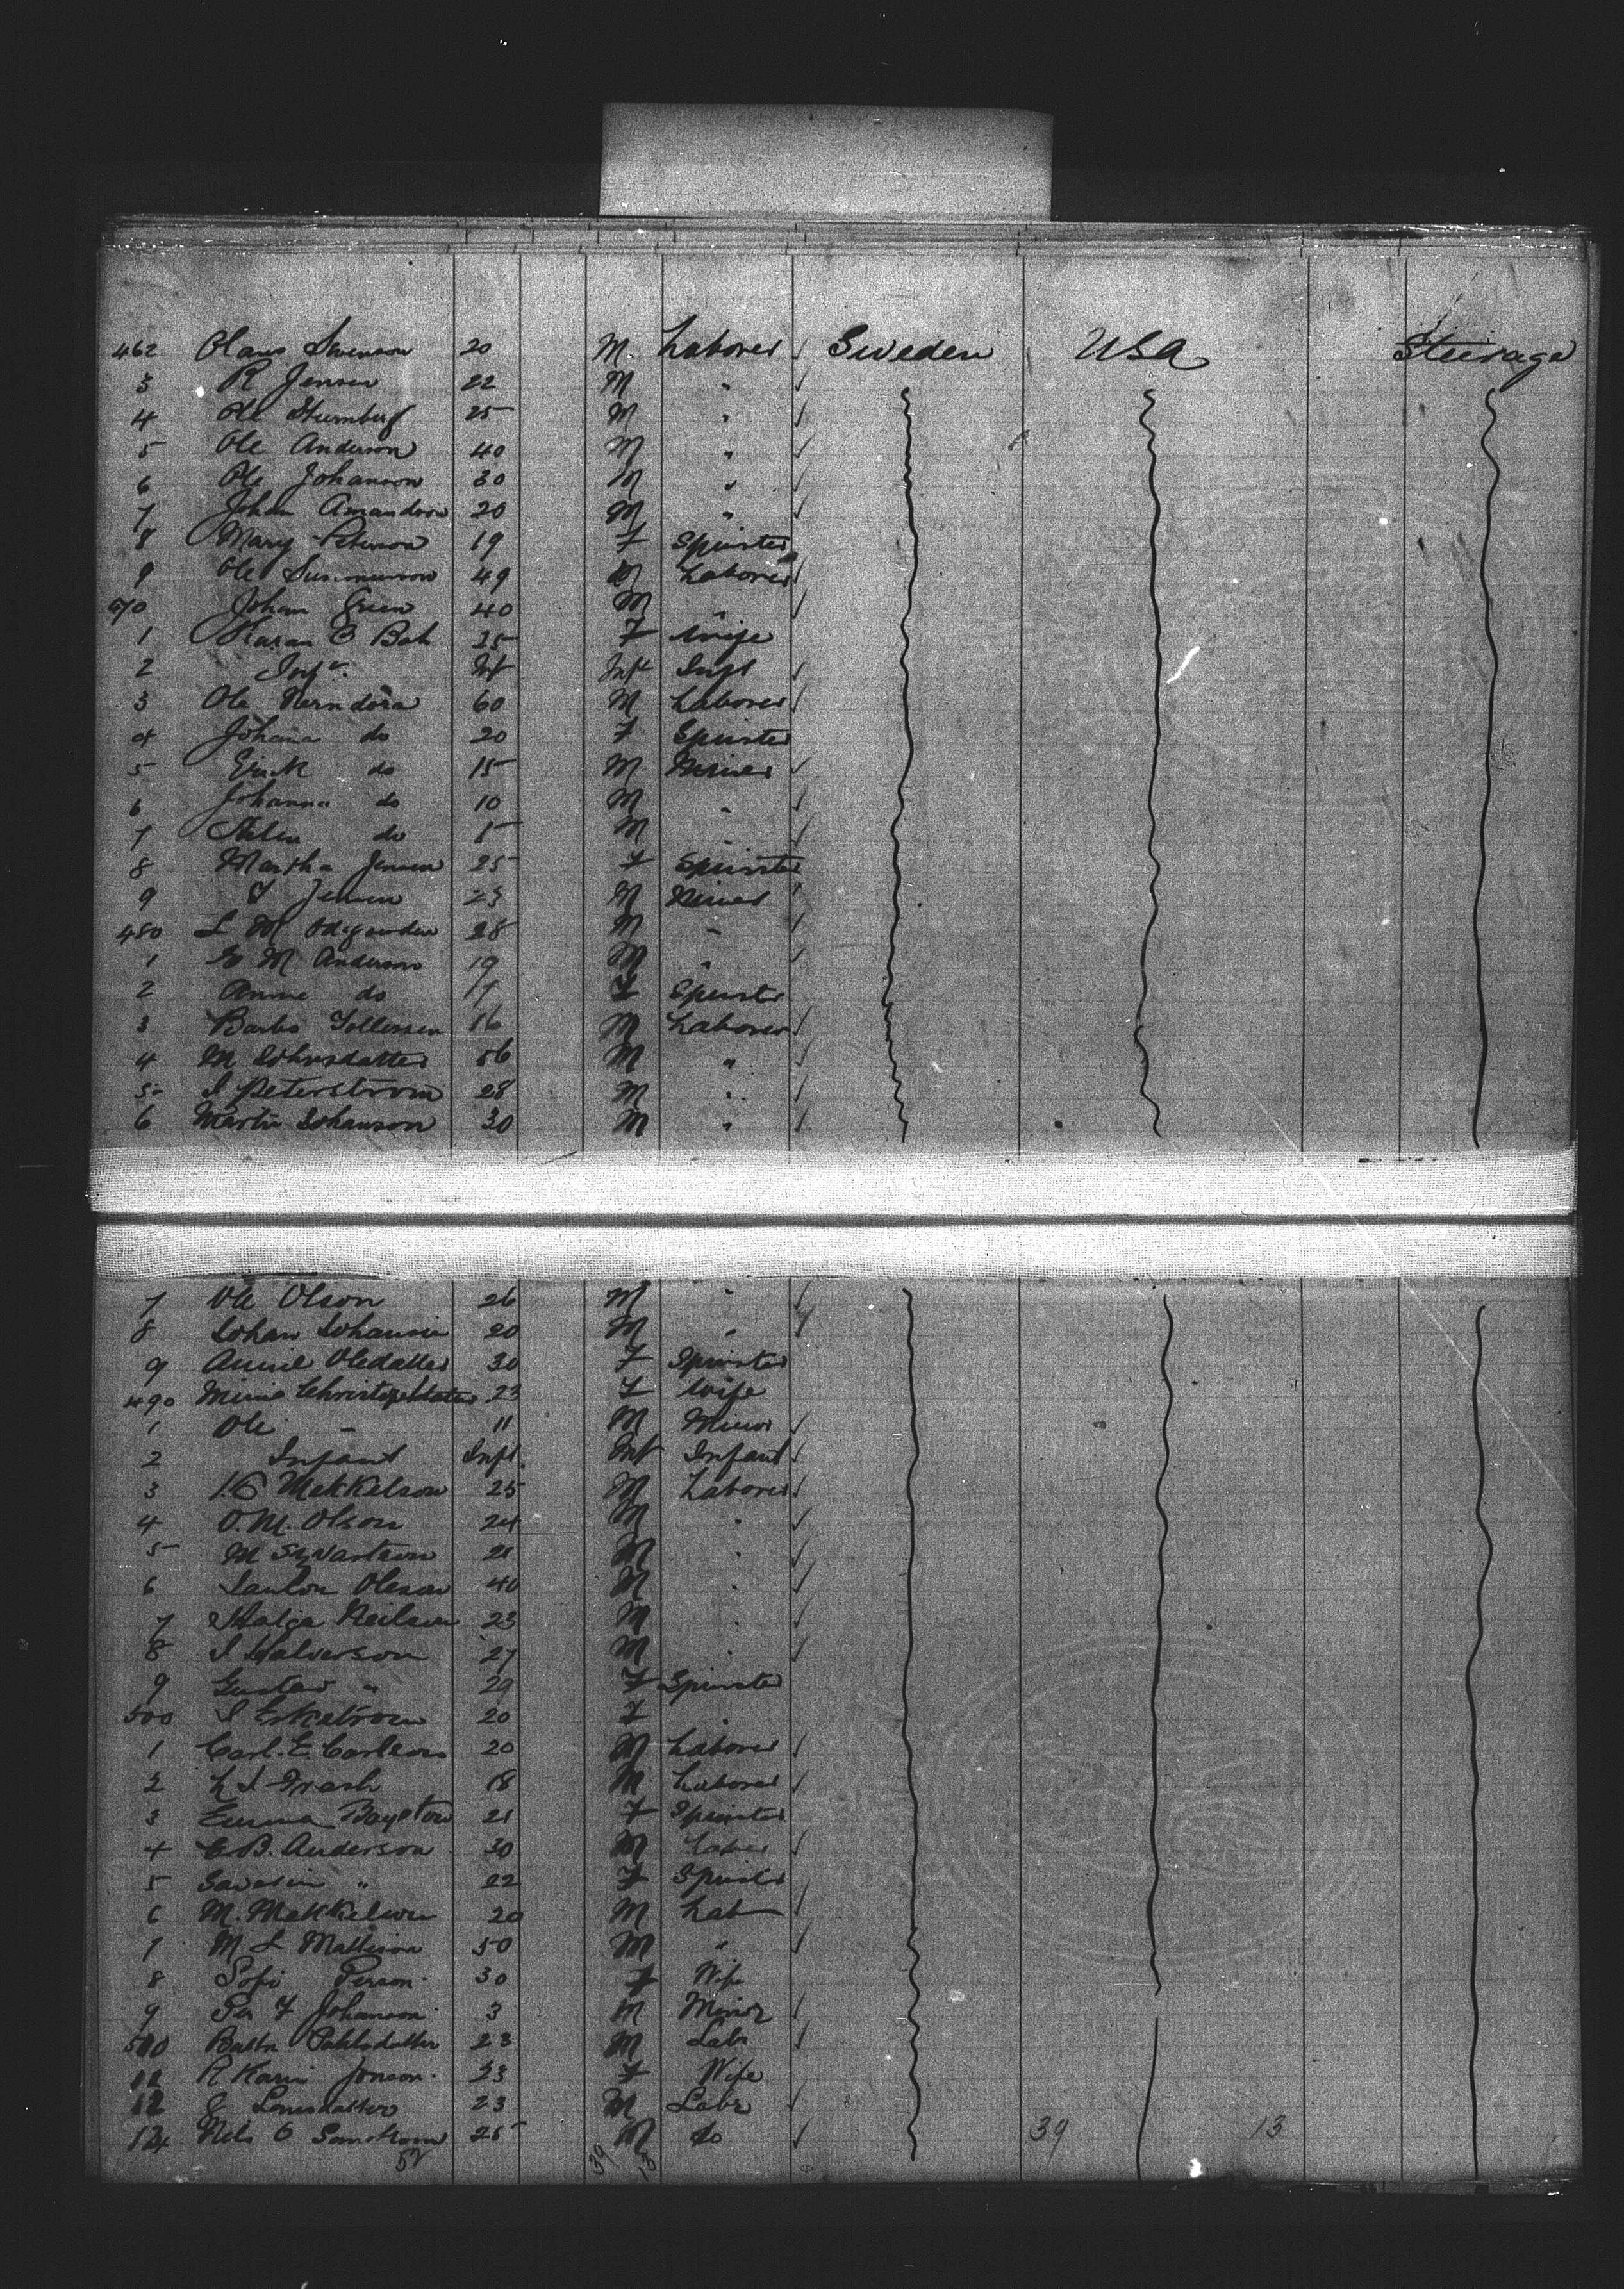 462 Olaus Swenson 20 M. Laborer ✓ Sweden USA Steerage
3 R Jensen 22 M " ✓
4 Ole 25 M " ✓
5 Ole Anderson 40 M " ✓
6 Ole Johanson 30 M " ✓
7 Johan 20 M " ✓
8 Mary Peterson 19 F Spinster
9 Ole 49 M Laborer ✓
470 Johan Green 40 M " ✓
1 Karan B Bah 25 F Wife
2 Inft. Inft Inft Inft ✓
3 Ole Nerndora 60 M Laborer ✓
4 Johana do 20 F Spinster
5 Erick do 15 M Minor ✓
6 Johanna do 10 M " ✓
7 do M " ✓
8 Martha Jensen 25 F Spinster
9 Jensen 23 M Minor ✓
480 L M 28 M " ✓
1 M Anderson 19 M " ✓
2 Anne do 17 F Spinster
3 Barbo Tollessen 16 M Laborer ✓
4 M Johnsdatter 56 M " ✓
5 I Peterstrom 28 M " ✓
6 Martin Johanson 30 M " ✓
7 Ole Olson 26 M " ✓
8 Johan Johansen 20 M " ✓
9 Annie Oledatter 30 F Spinster
490 Minie 23 F Wife
1 Ole " 11 M Minor ✓
2 Infant Inft. Inft Infant ✓
3 Mekkelson 25 M Laborer ✓
4 O. M. Olson 24 M " ✓
5 M 21 M " ✓
6 Oleson 40 M " ✓
7 Neilsen 23 M " ✓
8 I Halverson 27 M " ✓
9 Gustav " 29 F Spinster
500 I 20 F "
1 Carl. E. Carlson 20 M Laborer ✓
2 18 M Laborer ✓
3 Emma 21 F Spinster
4 C B. Anderson 30 M Laber ✓
5 " 22 F Spinster
6 M. Mekkelson 20 M Lab ✓
7 M L Mattison 50 M " ✓
8 Sofi Person. 30 F Wife
9 Per F Johanson 3 M Minor ✓
510 23 M Labr ✓
11 R Karin Jonson. 23 F Wife
12 23 M Labr ✓
Nels 25 M do ✓ 39 13
52 39 13